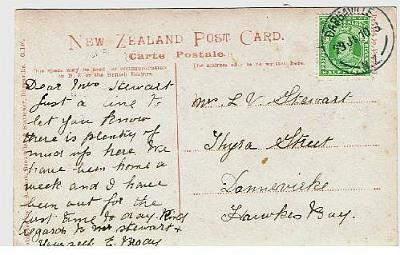 NEW ZEALAND POST CARD.
Carte Postale.
This space may be used for communication
The address only to be written here.
DARGAVILLE
Dear Mrs Stewart
Just a line to
let you know
there is plenty of
mud up here We
have been home a
week and I have
been out for the
first time to day. Kind
regards to Mr Stewart &
Yourself E.
Mrs L V Stewart
Thyra Street
Dannevirke
Hawkes Bay.